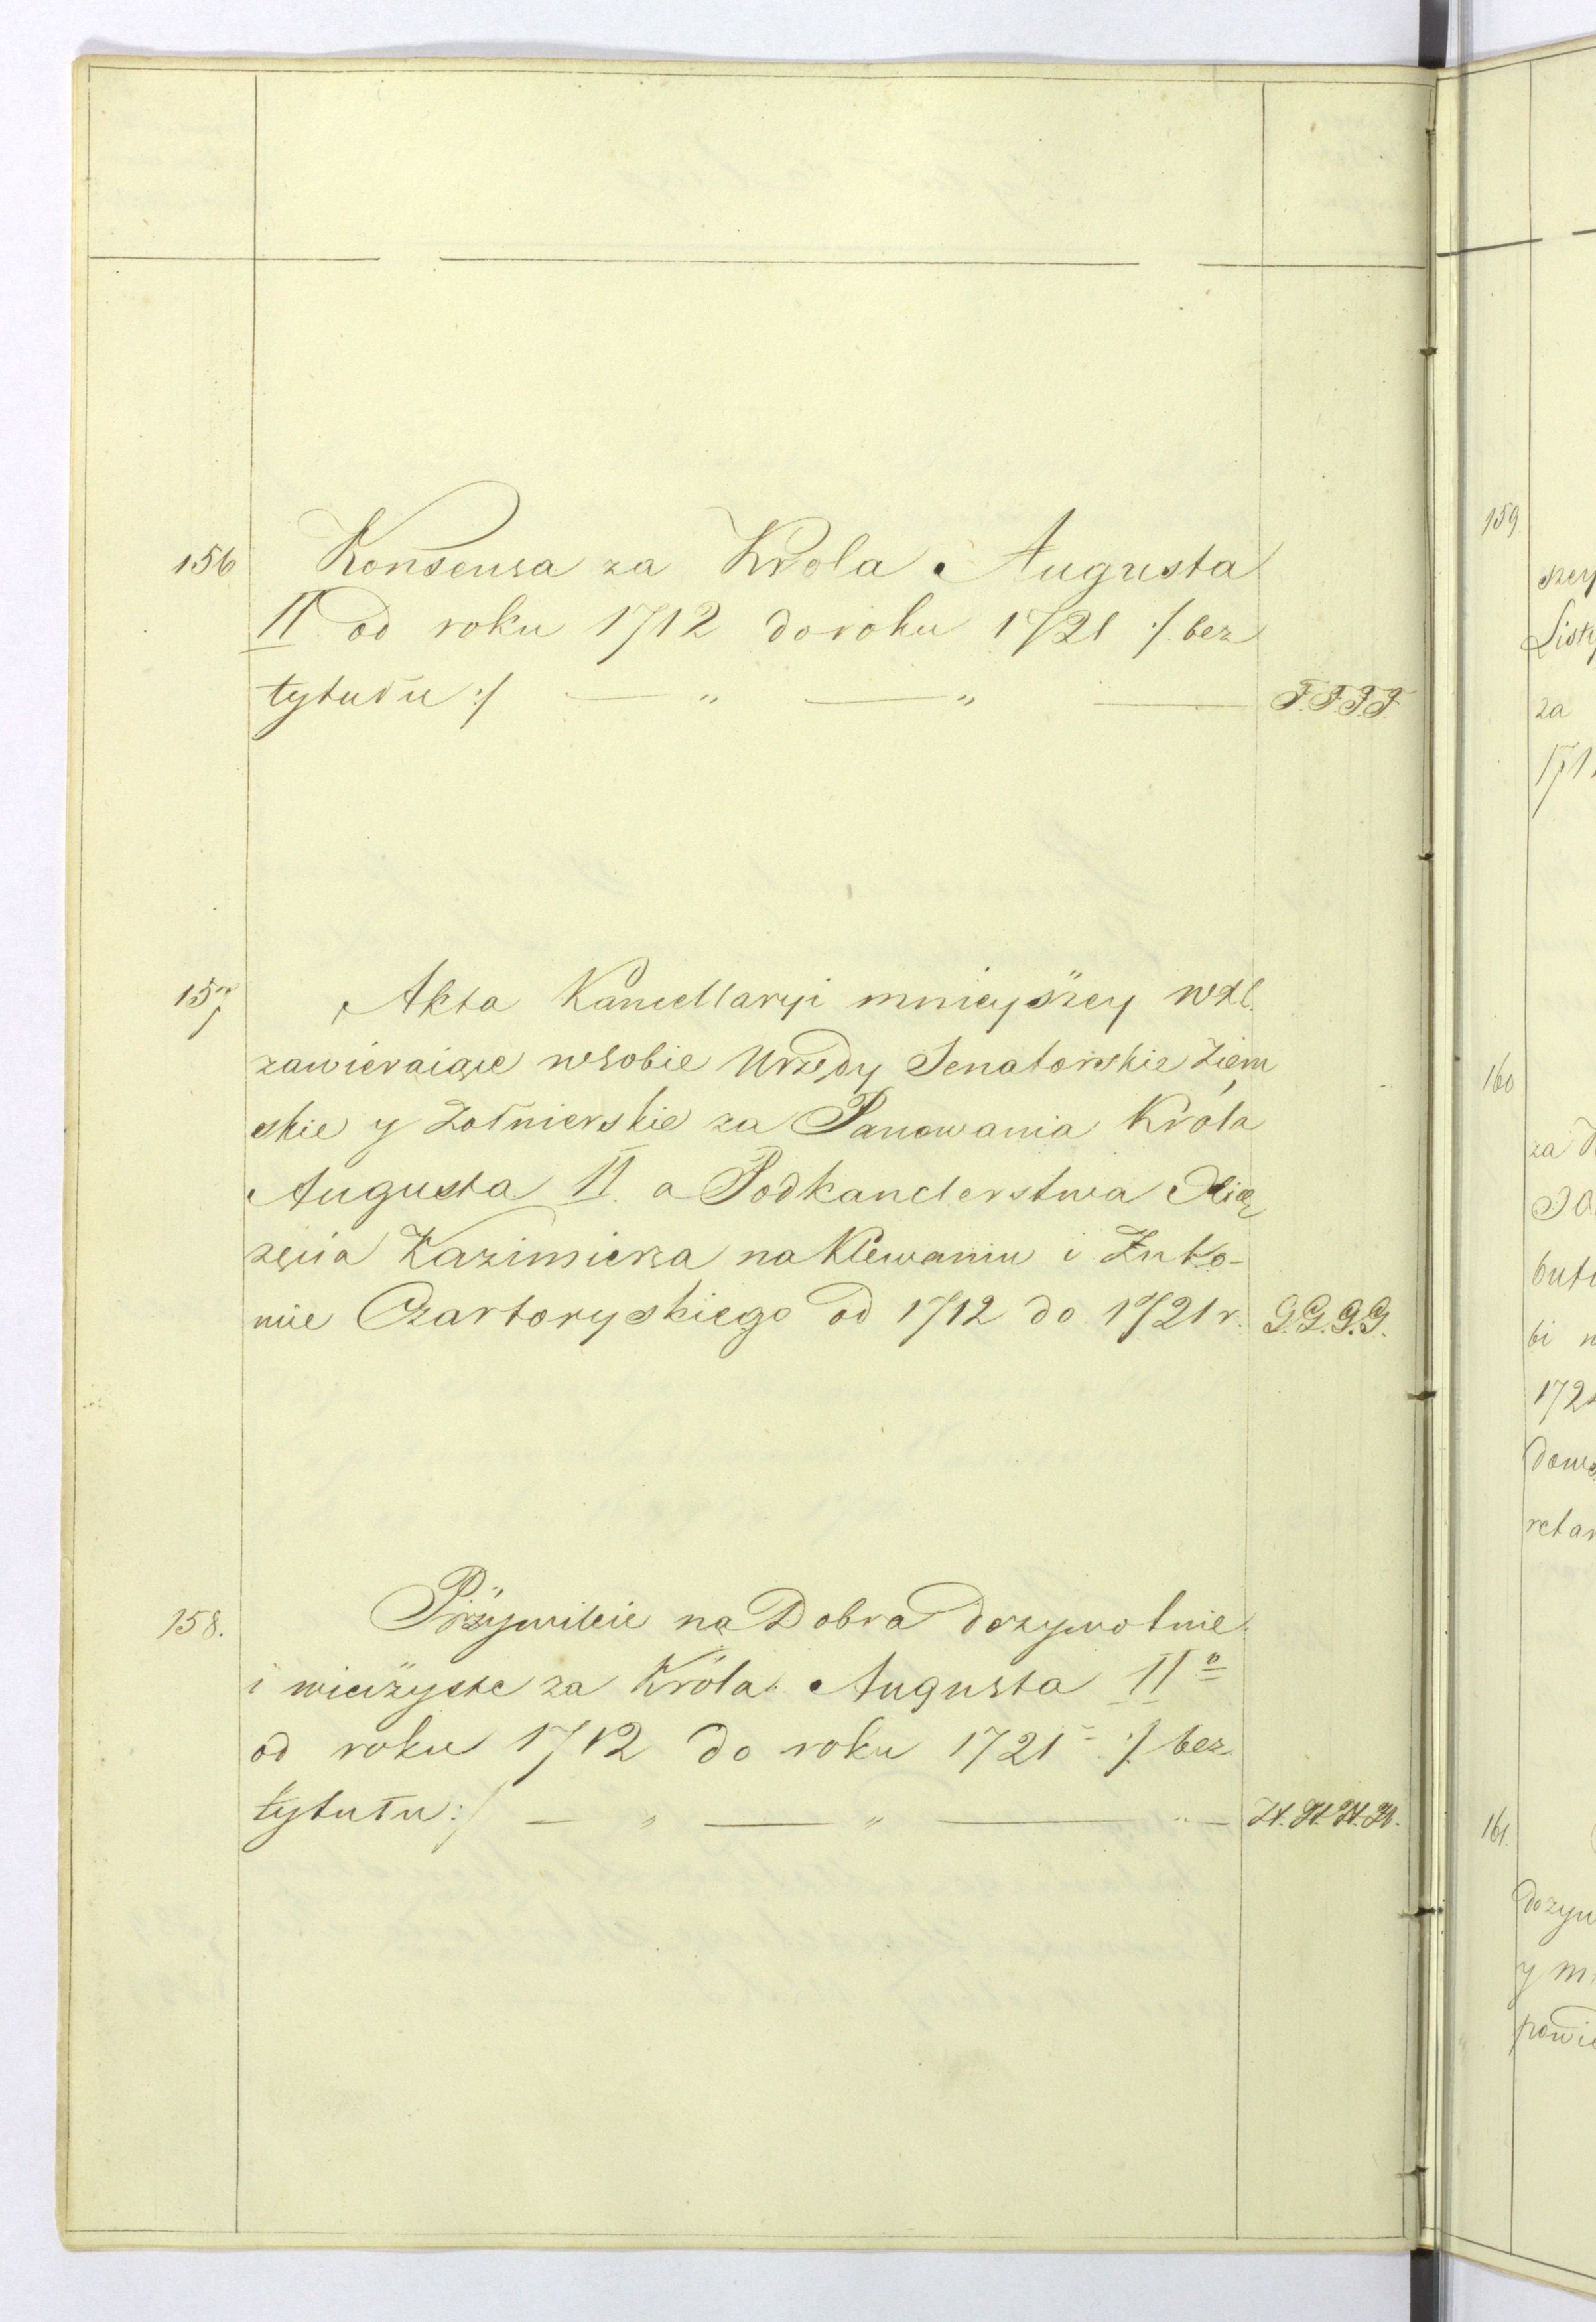 156 Konsensa za Krola Augusta
II od roku 1712 do roku 1721 :/. bez
tytułu :/ — „ — „ — F.F.F.F.
157 Akta Kancellaryi mnieyszey WXL.
zawieraiące w sobie Urzędy Senatorskie Ziem
skie y Żołnierskie za Panowania Króla
Augusta II. a Podkanclerstwa Xią
żęcia Kazimierza na Klewaniu i Żuko-
wie Czartoryskiego od 1712 do 1721 r. G.G.G.G.
158. Przywileie na Dobra dozywotnie
i wieczyste za Króla Augusta IIº
od roku 1712 do roku 1721 :/. bez
tytułu :/ — „ — „ — „ — H.H.H.H.
159
Listy
za
171
160
za
172
161
y